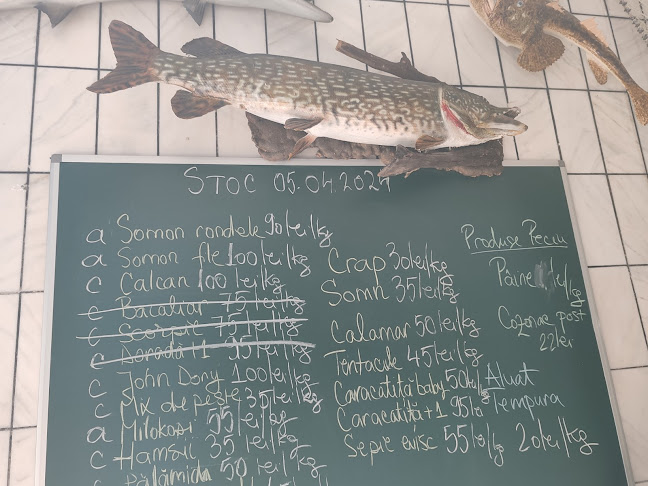 STOC 05.04.2024
a Somon rondele 90 lei/kg
a Somon file 100 lei/kg
c Calcan 100 lei/kg
c Bacaliar 75 lei/kg
c Scorpie 75 lei/kg
c Dorada +1 95 lei/kg
c John Dory 100 lei/kg
c Mix de pește 35 lei/kg
a Milokopi 55 lei/kg
c Hamsii 35 lei/kg
c Pălămidă 50 lei/kg
Crap 30 lei/kg
Somn 35 lei/kg
Calamar 50 lei/kg
Tentacule 45 lei/kg
Caracatiță baby 50 lei/kg
Caracatiță +1 95 lei
Sepie evisc 55 lei/kg
Produse Peciu
Pâine lei/kg
Cozonac post
22 lei
Aluat
Tempura
20 lei/kg